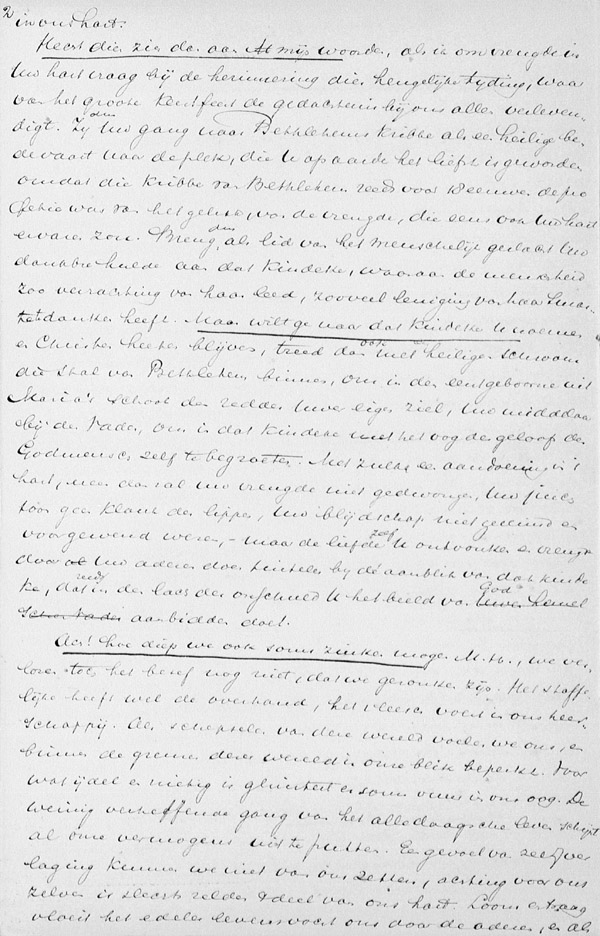 2 in ons hart:
Meent die zin dan aan mijn woorden, als ik om vreugde in
Uw hart vraag bij de herinnering dier hemelsche tijding, waar
van het groote Kerstfeest de gedachtenis bij ons allen verleven-
digt. Zij dan Uw gang naar Bethlehems Kribbe als een heilige be-
devaart naar de plek, die U op aarde het liefst is geworden
omdat die Kribbe van Bethlehem reeds voor eeuwen de pro
fetie was van het geluk, van de vreugde, die eens ook Uw hart
ervaren zou. Breng dan, als lid van het menschelijk geslacht Uw
dankbre hulde aan dat Kindeke, waaraan de menschheid
zoo verzachting van haar leed, zooveel leniging van haar smar-
te danken heeft. Maar wilt ge naar dat kindeke U noemen
en Christen heeten blijven, treed dan ook met heilige schroom
die stal van Bethlehem binnen, om in den eerstgeboorne uit
Maria's schoot den redder Uwer eigen ziel, Uw middelaar
bij den Vader, om in dat kindeke met het oog des geloofs den
Godmensch zelf te begroeten. Met zulk een aandoening in 't
hart, neen dan zal Uw vreugde niet gedwongen, Uw juich
toon geen klank der lippen, Uw blijdschap niet geveinsd en
voorgewend wezen, - maar de liefde zelf U ontvonken en vreugde
door al Uw aderen doen tintelen bij de aanblik van dat kinde
ke, dat reeds in den lach der onschuld U het beeld van God Uwen hemel
schen Vader aanbidden doet.
Ach! hoe diep we ook soms zinken mogen M. H., we ver-
loren toch het besef nog niet, dat we gezonken zijn. Het stoffe-
lijke heeft wel de overhand, het vleesch voert in ons heer-
schappij. Als schepselen van deze wereld voelen we ons, en
binnen de grenzen dezer wereld is onze blik beperkt. Voor
wat ijdel en nietig is glinstert er soms vuur in ons oog. De
weinig verheffende gang van het alledaagsche leven schijnt
al onze vermogens uit te putten. Een gevoel van zelfver
laging kennen we niet van ons zelven, achting voor ons
zelven is slechts zelden 't deel van ons hart. Loom en traag
vloeit het edeler levensvocht ons door de aderen, en als